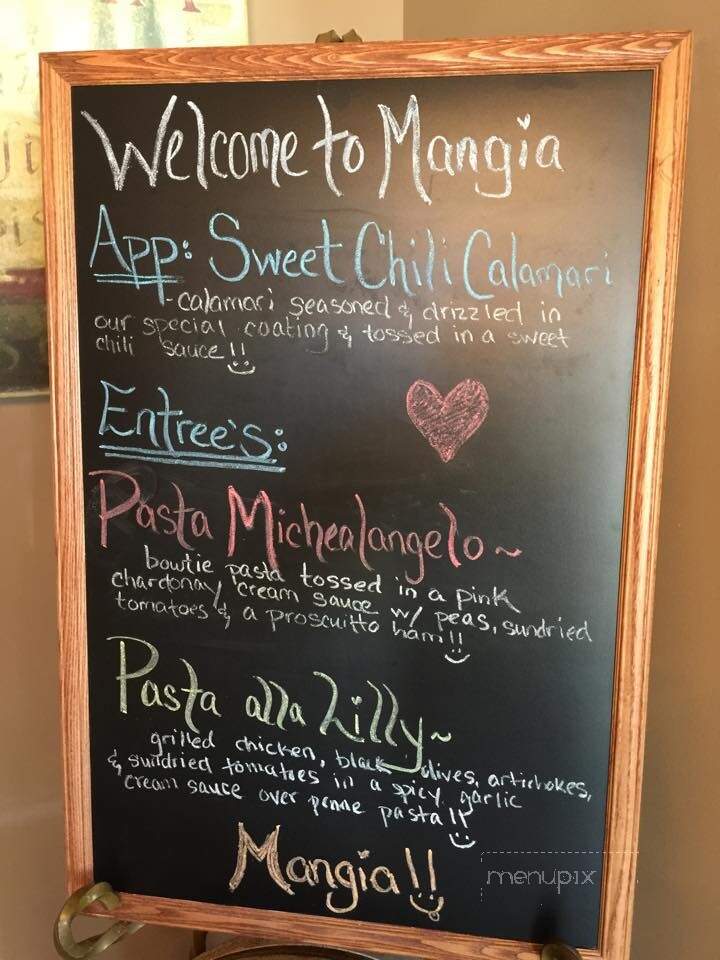 Welcome to Mangia
App: Sweet Chili Calamari
- calamari seasoned & drizzled in
our special coating & tossed in a sweet
chili sauce!!
Entree's:
Pasta Michealangelo ~
bowtie pasta tossed in a pink
chardonay cream sauce w/ peas, sundried
tomatoes & a proscuitto ham!!
Pasta alla Lilly ~
grilled chicken, black olives, artichokes,
& sundried tomatoes in a spicy garlic
cream sauce over penne pasta!!
Mangia!!
menupix